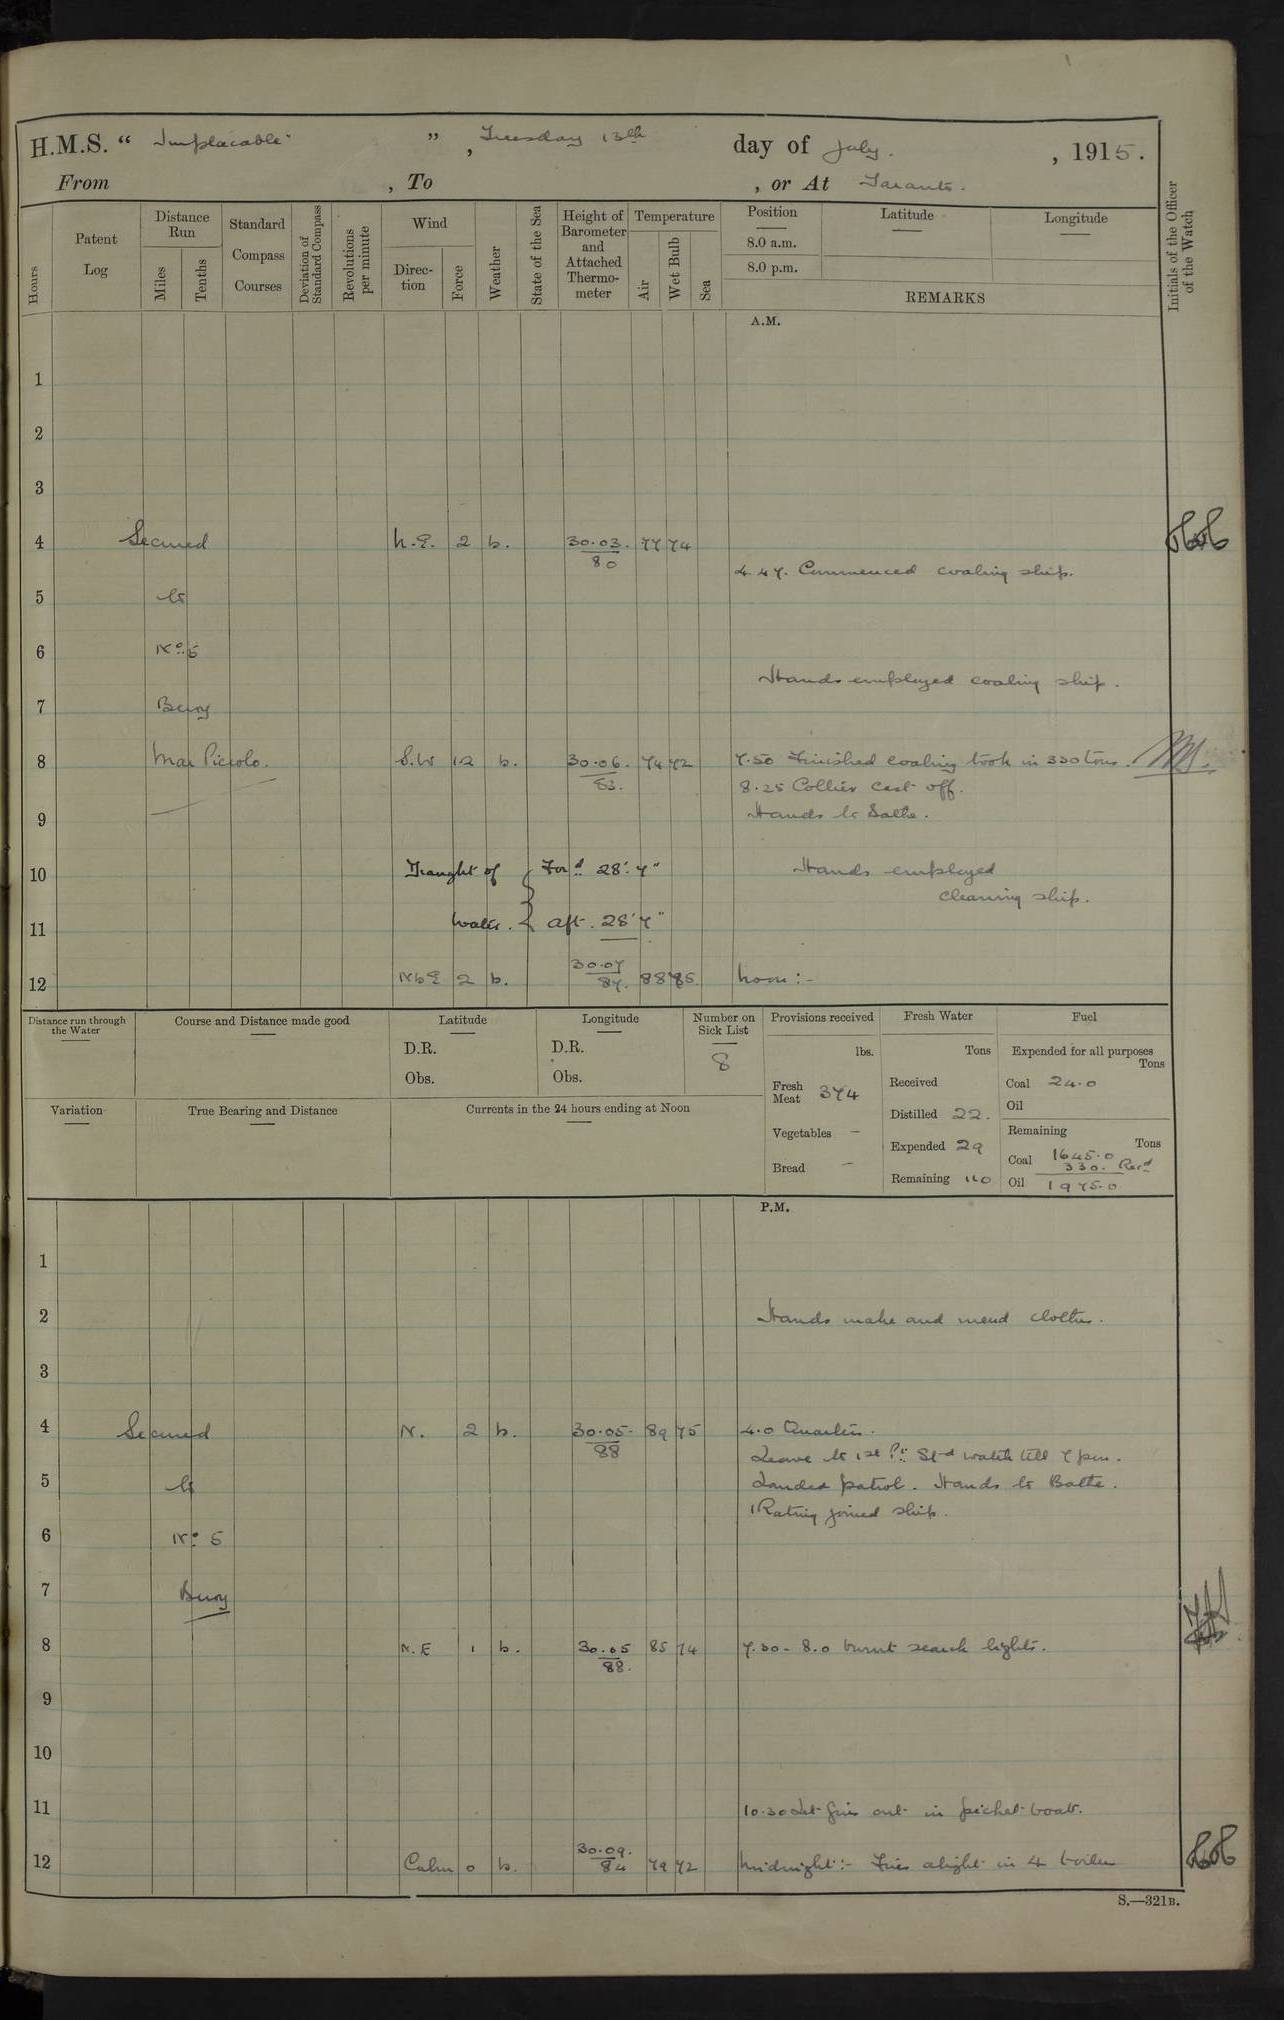 H.M.S. “ Implacable ” , Tuesday 13th day of July. , 1915.
From , To , or At Taranto.
Hours
Patent Log
Distance Run
Miles
Tenths
Standard Compass Courses
Deviation of Standard Compass
Revolutions per minute
Wind
Direction
Force
Weather
State of the Sea
Height of Barometer and Attached Thermometer
Temperature
Air
Wet Bulb
Sea
Position
8.0 a.m.
8.0 p.m.
Latitude
Longitude
REMARKS
Initials of the Officer of the Watch
A.M.
1
2
3
4 Secured N.E. 2 b. 30.03. 77 74
80
4.47. Commenced coaling ship.
5 to
6 No. 5
Hands employed coaling ship.
7 Buoy
8 Mar Piccolo. S.W 1.2 b. 30.06. 74 72 7.50 Finished coaling took in 330 tons.
83. 8.25 Collier cast off.
9 Hands to Bathe.
10 Draught of { For'd 28'.7" Hands employed
cleaning ship.
11 Water. { aft. 28'7"
12 NbE 2 b. 30.07 88 75 Noon:-
87.
Distance run through the Water
Course and Distance made good
Latitude
D.R.
Obs.
Longitude
D.R.
Obs.
Number on Sick List
8
Provisions received
lbs.
Fresh Meat 374
Vegetables –
Bread –
Fresh Water
Tons
Received
Distilled 22.
Expended 29
Remaining 110
Fuel
Expended for all purposes
Tons
Coal 24.0
Oil
Remaining
Tons
Coal 1645.0
330. Recd
Oil 1975.0
Variation
True Bearing and Distance
Currents in the 24 hours ending at Noon
P.M.
1
2 Hands make and mend clothes.
3
4 Secured N. 2 b. 30.05. 89 75 4.0 Quarters.
88 Leave to 1st Pt Std watch till 7 pm.
5 to Landed patrol. Hands to Bathe.
1 Rating joined ship.
6 No. 5
7 Buoy
8 N.E 1 b. 30.05 85 74 7.30 - 8.0 burnt search lights.
88.
9
10
11 10.30 Let fires out in picket boat.
12 Calm 0 b. 30.09. 79 72 Midnight:- Fires alight in 4 boilers
84
S.—321B.